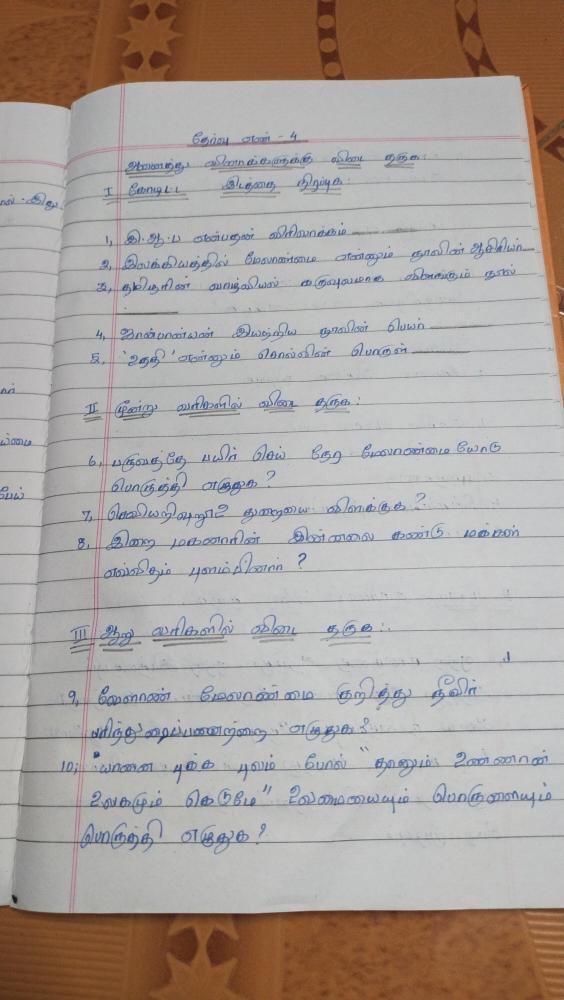 ால் - இது
தேர்வு எண் - 4
அனைத்து வினாக்களுக்கு விடை தருக:
I கோடிட்ட இடத்தை நிரப்புக:
1, இ.ஆ.ப என்பதன் விரிவாக்கம்
2, இலக்கியத்தில் மேலாண்மை என்னும் நூலின் ஆசிரியர்
3, தமிழரின் வாழ்வியல் கருவூலமாக விளங்கும் நூல்
4, ஜான்பாண்யன் இயற்றிய நூலின் பெயர்
5, 'உறுதி' என்னும் சொல்லின் பொருள்
II மூன்று வரிகளில் விடை தருக:
6, பருவத்தே பயிர் செய் நேர மேலாண்மையோடு
பொருத்தி எழுதுக?
7, செவியறிவுறூஉ துறையை விளக்குக?
8, இறை மகனாரின் இன்னலை கண்டு மக்கள்
எவ்விதம் புலம்பினார்?
III ஆறு வரிகளில் விடை தருக:.
9, வேளாண் மேலாண்மை குறித்து நீவிர்
எழுதுக?
10; "யானை புக்க புலம் போல" தானும் உண்ணான்
உலகமும் கெடுமே" உவமையையும் பொருளையும்
பொருத்தி எழுதுக?